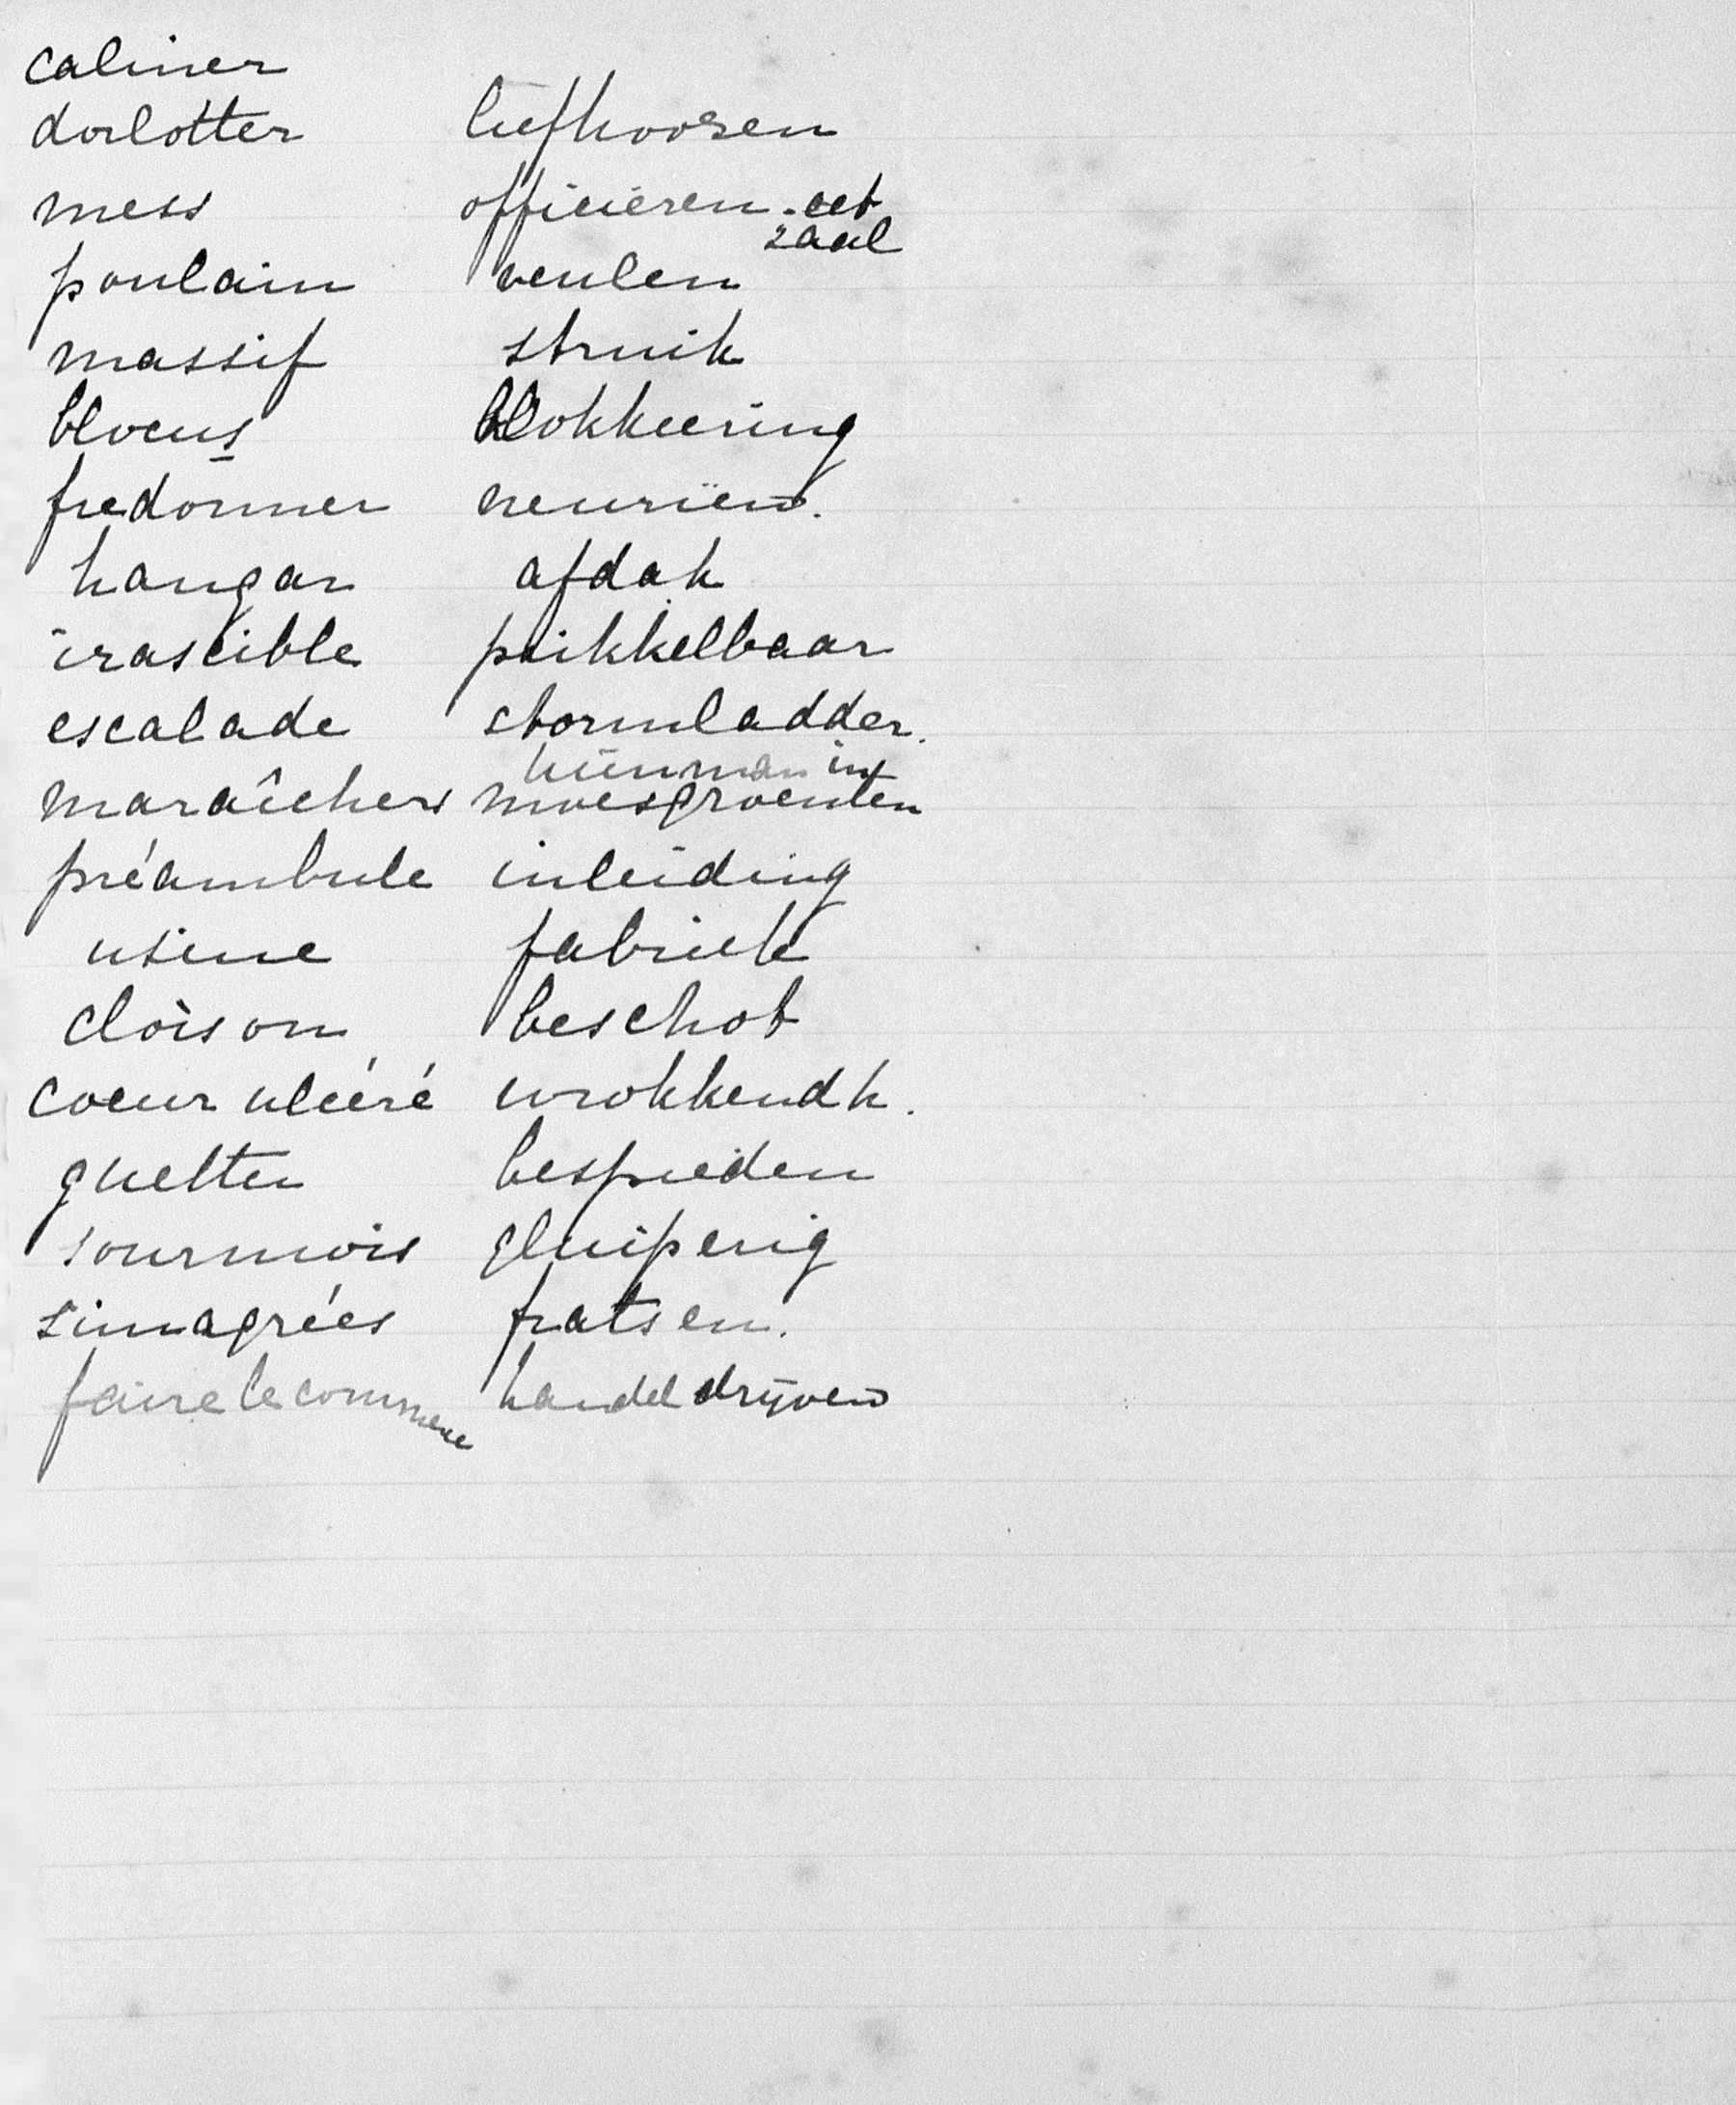 caliner
dorlotter liefkoozen
mess officieren-eet
zaal
poulain veulen
massif struik
blocus blokkeering
fredonner neuriën.
hangar afdak
irascible prikkelbaar
escalade stormladder.
tuinman in
maraîcher moesgroenten
préambule inleiding
usine fabriek
cloison beschot
coeur ulcéré wrokkend h.
guetter bespieden
sournois gluiperig
simagrées fratsen.
faire le commerce handel drijven